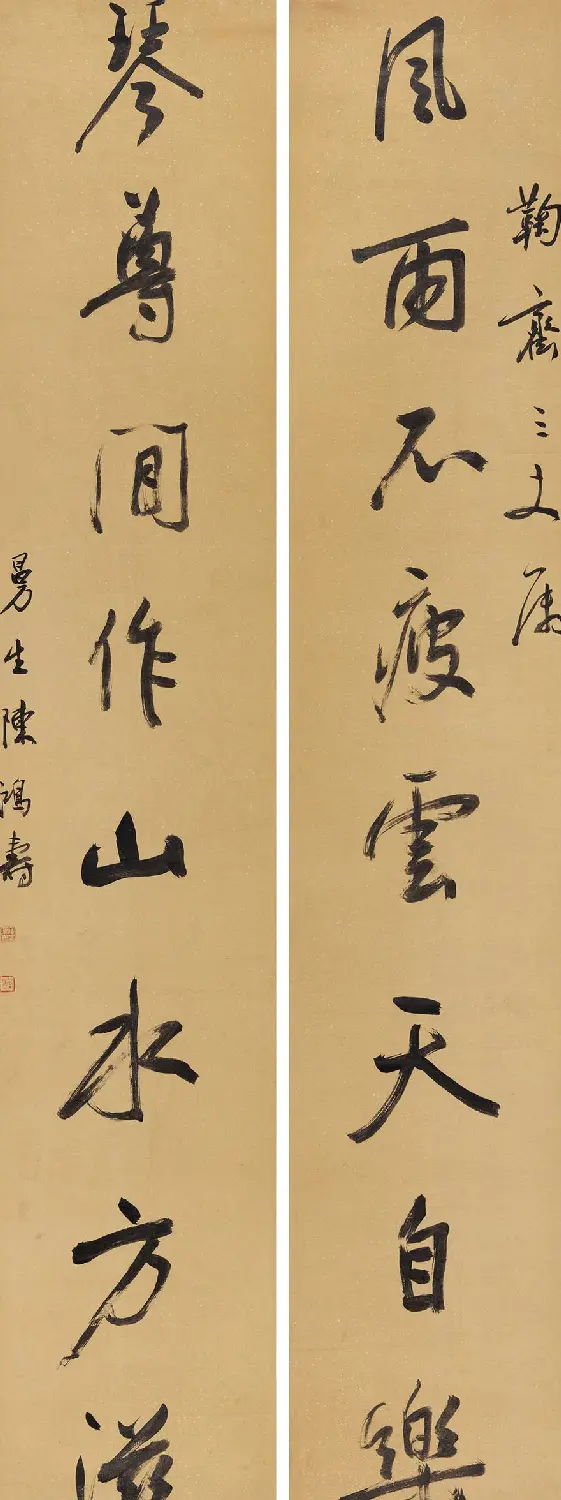 鞠三丈屬
風雨不疲雲天自樂
琴尊間作山水方滋
曼生陳鴻壽